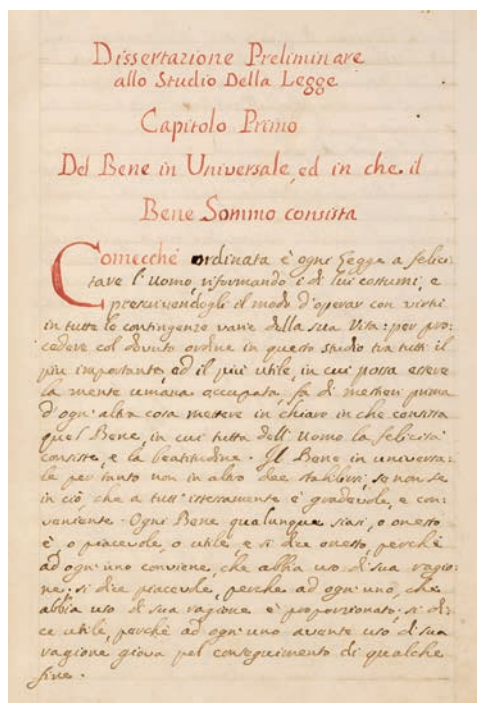 Dissertazione Preliminare
allo Studio Della Legge
Capitolo Primo
Del Bene in Universale, ed in che il
Bene Sommo consista
Comecchè ordinata è ogni Legge a felici:
tare l'Uomo, riformando i di lui costumi, e
prescrivendogli il modo d'operar con virtù
in tutte le contingenze varie della sua Vita: per pro:
cedere col dovuto ordine in questo studio tra tutti il
più importante, ed il più utile, in cui possa essere
la mente umana occupata, fa di mestieri prima
d'ogni altra cosa mettere in chiaro in che consista
quel Bene, in cui tutta dell'Uomo la felicità
consiste, e la beatitudine. Il Bene in universa:
le per tanto non in altro dee stabilirsi, se non se
in ciò, che a tutt' interamente è gradevole, e con:
veniente. Ogni Bene qualunque siasi, o onesto
è, o piacevole, o utile, e si dice onesto, perchè
ad ogni uno conviene, che abbia uso di sua ragio:
ne: si dice piacevole, perchè ad ogni uno, che
abbia uso di sua ragione è proporzionato; si di:
ce utile, perchè ad ogni uno avente uso di sua
ragione giova pel conseguimento di qualche
fine.